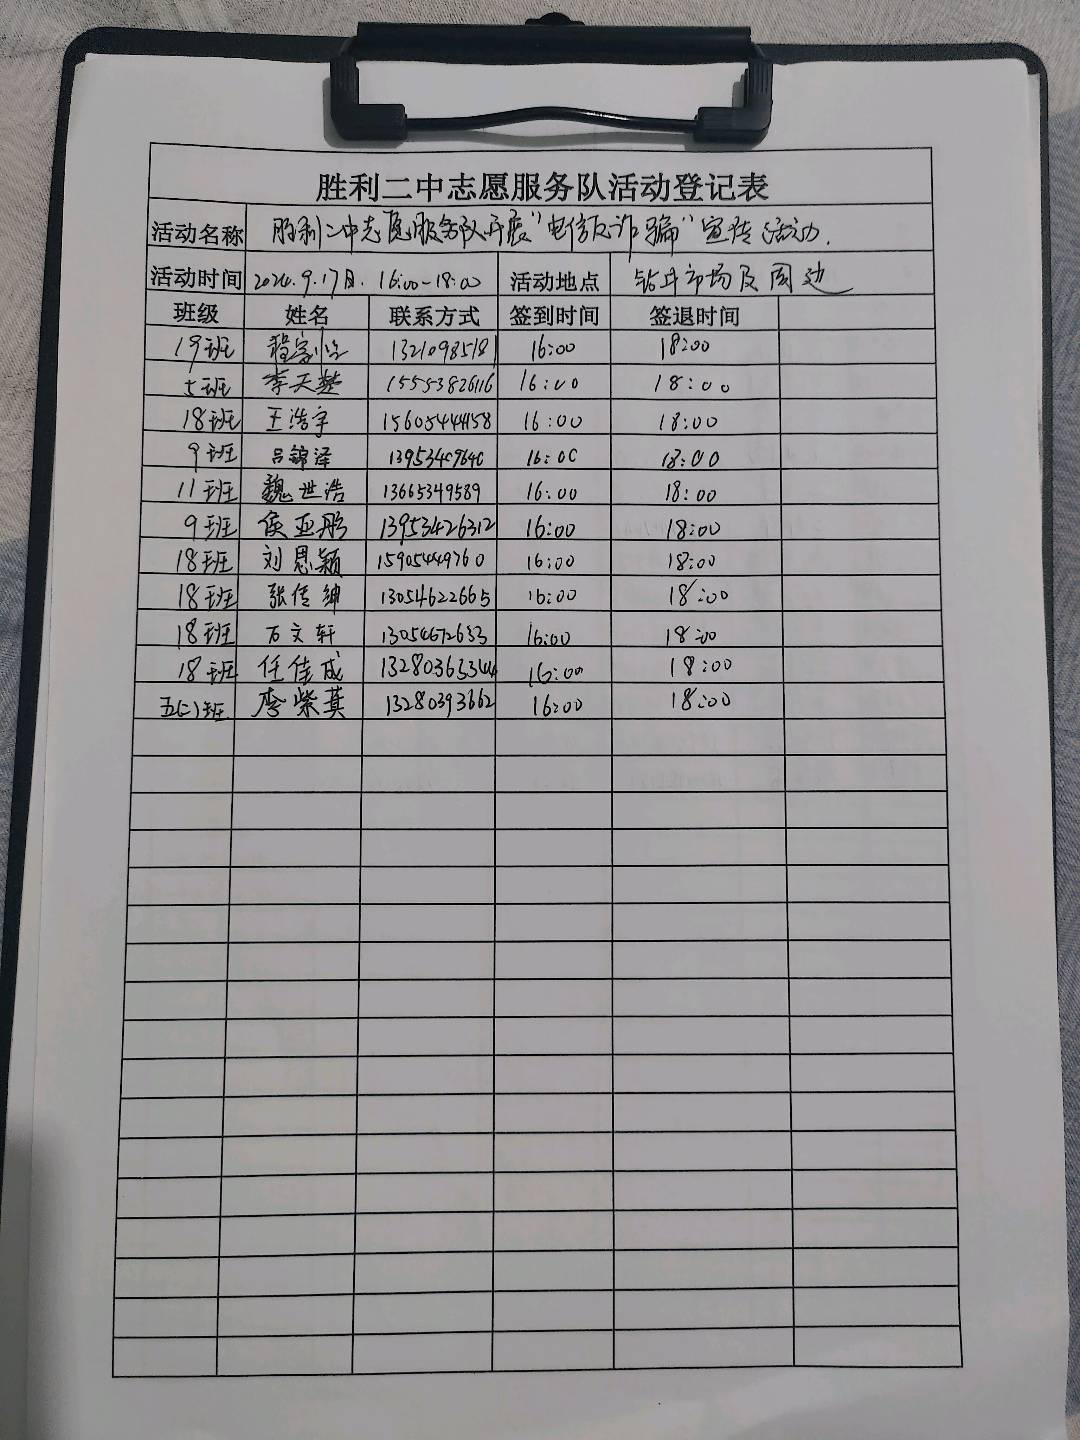 胜利二中志愿服务队活动登记表
活动名称 胜利二中志愿服务队开展"电信反诈骗"宣传活动.
活动时间 2024.9.17日. 16:00-18:00 活动地点 钻井市场及周边
班级 姓名 联系方式 签到时间 签退时间
19班 程家 1321098518 16:00 18:00
5班 李天楚 15553826116 16:00 18:00
18班 王浩宇 15605444158 16:00 18:00
9班 吕锦泽 13953409640 16:00 18:00
11班 魏世浩 13665349589 16:00 18:00
9班 侯亚彤 13953426312 16:00 18:00
18班 刘思颖 15905449760 16:00 18:00
18班 张传绅 13054622665 16:00 18:00
18班 万文轩 13054672633 16:00 18:00
18班 任佳成 13280363344 16:00 18:00
五(二)班 李紫萁 13280393662 16:00 18:00